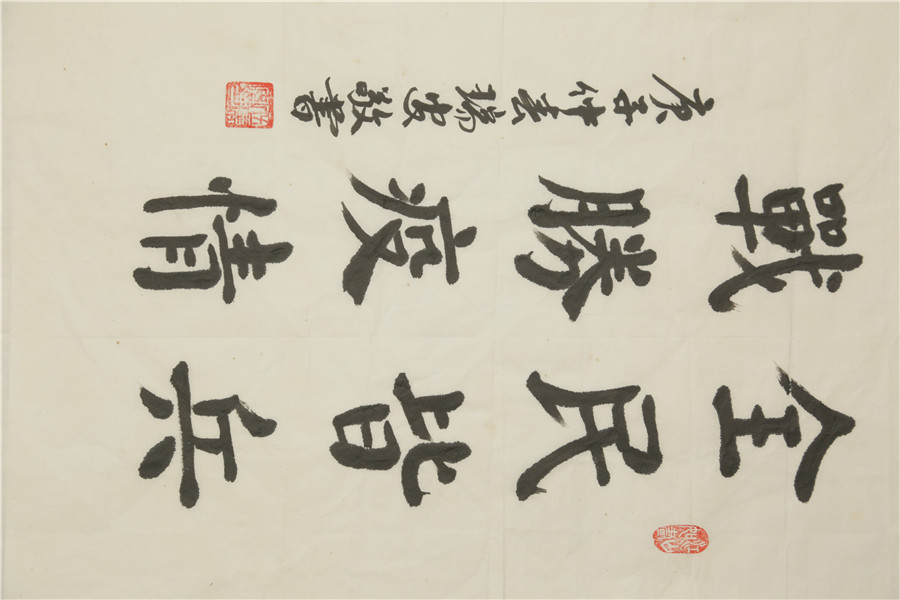 全民皆兵
戰勝疫情
庚子仲春瑞安敬書